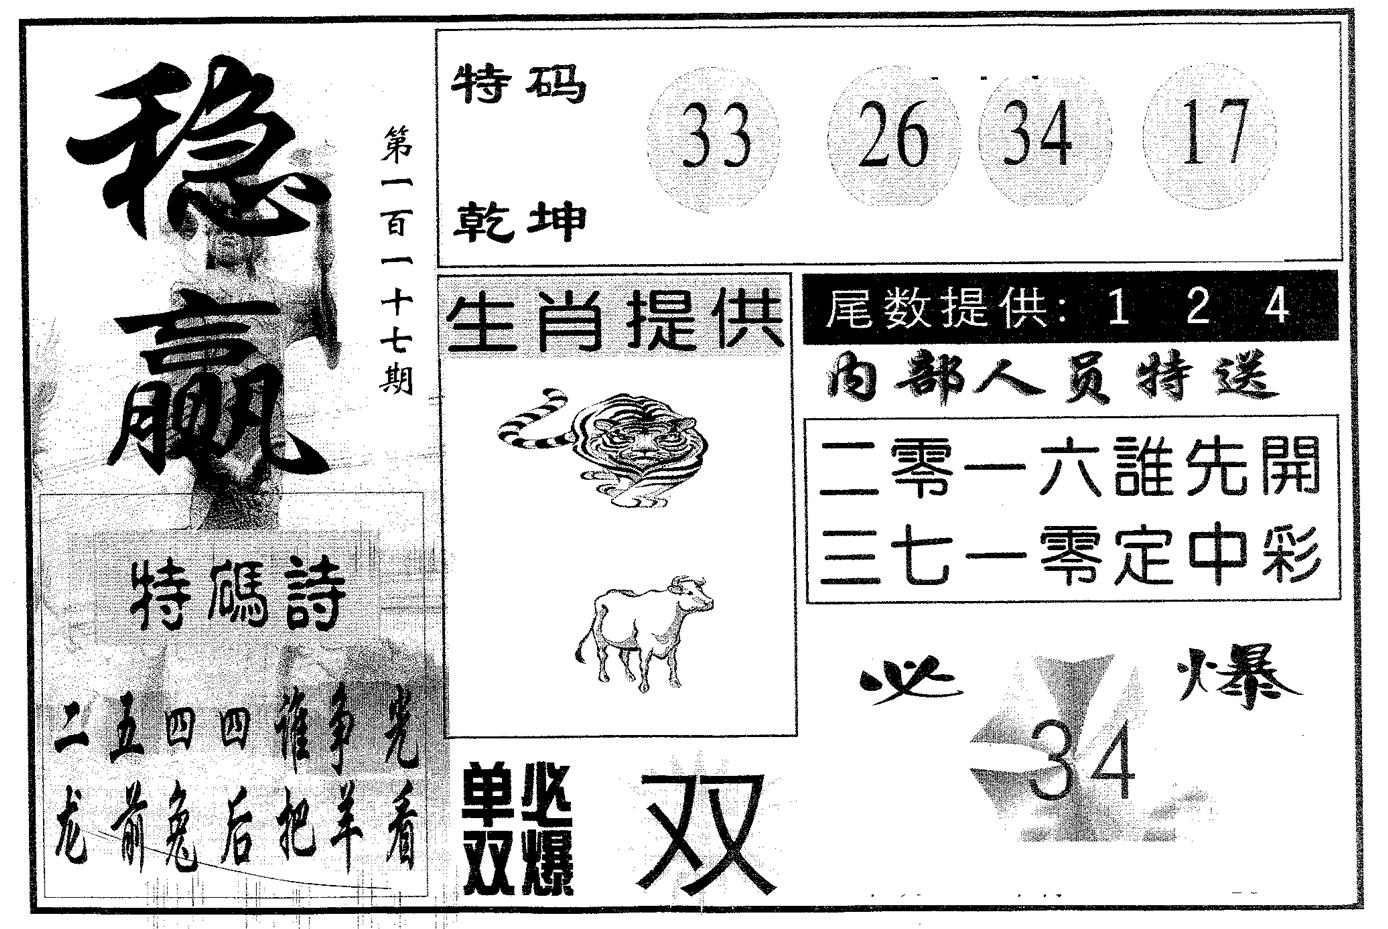 稳赢
第一百一十七期
特码
乾坤
33 26 34 17
特碼詩
二五四四谁争光
龙前兔后把羊看
生肖提供
单双必爆
双
尾数提供: 1 2 4
内部人员特送
二零一六誰先開
三七一零定中彩
必爆
34